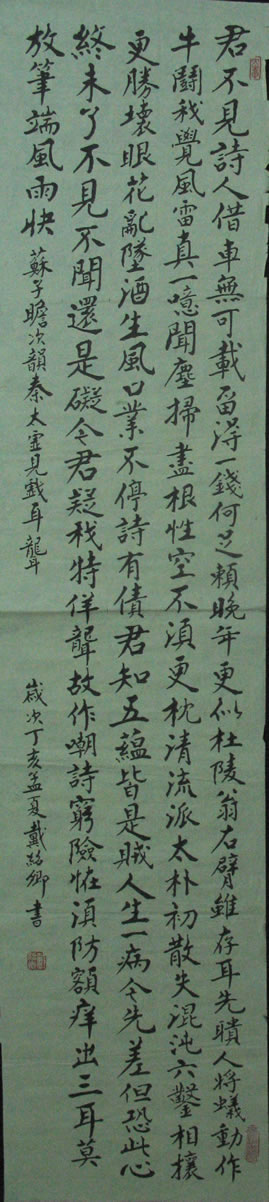 君不見詩人借車無可載畱得一錢何足賴晚年更似杜陵翁右臂雖存耳先聵人將蟻動作
牛鬪我覺風雷真一噫聞塵掃盡根性空不湏更枕清流派太朴初散失混沌六鑿相攘
更勝壞眼花亂墜酒生風口業不停詩有債君知五蘊皆是賊人生一病今先差但恐此心
終未了不見不聞還是礙今君疑我特佯聾故作嘲詩窮險恠湏防額癢出三耳莫
放筆端風雨快 蘇子瞻次韻秦太虛見戲耳聾 歲次丁亥孟夏戴紹卿書